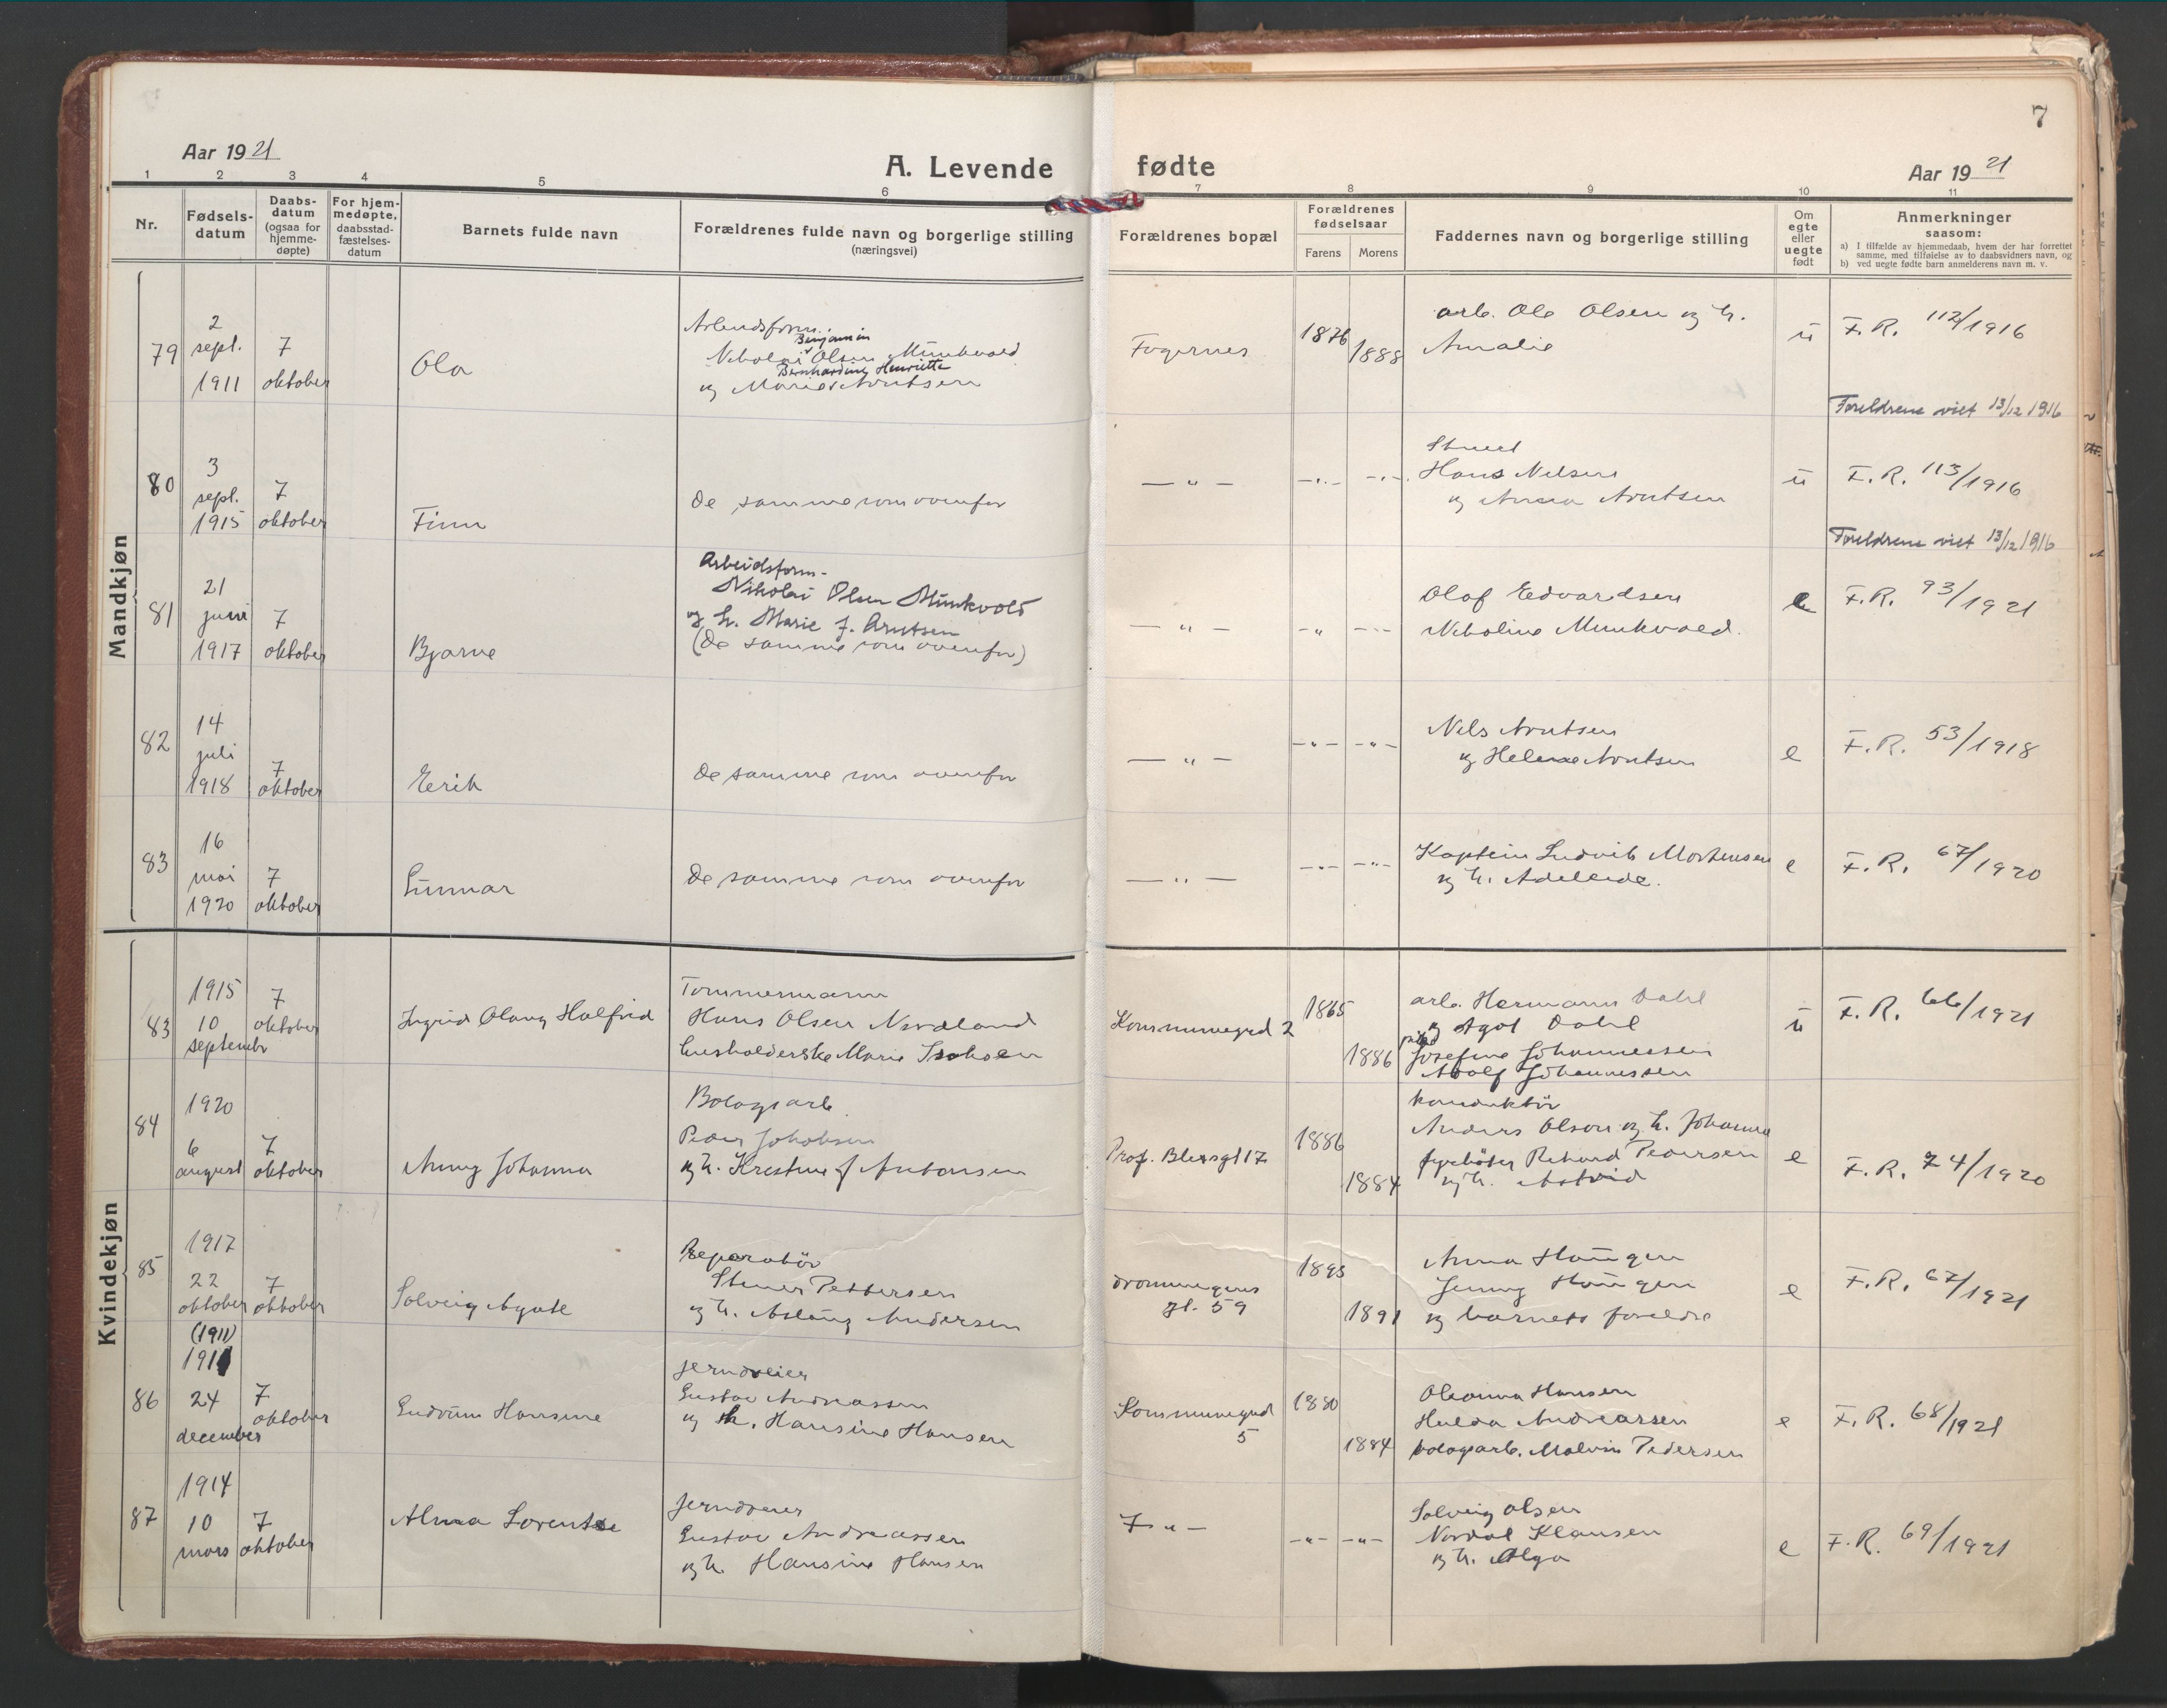 7
Aar 1921
A. Levende
fødte
Aar 1921
1 2 3 4 5 6 7 8 9 10 11
Nr.
Fødsels-
datum
Daabs-
datum
(ogsaa for
hjemme-
døpte)
For hjem-
medøpte,
daabsstad-
fæstelses-
datum
Barnets fulde navn
Forældrenes fulde navn og borgerlige stilling
(næringsvei)
Forældrenes bopæl
Forældrenes
fødselsaar
Farens Morens
Faddernes navn og borgerlige stilling
Om
egte
eller
uegte
født
Anmerkninger
saasom:
a) I tilfælde av hjemmedaab, hvem der har forrettet
samme, med tilføielse av to daabsvidners navn, og
b) ved uegte fødte barn anmelderens navn m. v.
Mandkjøn
79
2
sept.
1911
7
oktober
Ola
Arbeidsform.
Benjamin
Nikolai Olsen Munkvold
Bernhardine Henriette
og Marie Arntsen
Fagernes
1876
1888
arb. Ole Olsen og h.
Amalie
u
F.R. 112/1916
Foreldrene viet 13/12 1916
80
3
sept.
1915
7
oktober
Finn
De samme som ovenfor
— " —
-"- -"-
Stuert
Hans Nilsen
og Anna Arntsen
u
F.R. 113/1916
Foreldrene viet 13/12 1916
81
21
juni
1917
7
oktober
Bjarne
Arbeidsform.
Nikolai Olsen Munkvold
og h. Marie f. Arntsen
(De samme som ovenfor)
— " —
-"- -"-
Olaf Edvardsen
Nikoline Munkvold.
e
F.R. 93/1921
82
14
juli
1918
7
oktober
Erik
De samme som ovenfor
— " —
-"- -"-
Nels Arntsen
og Helene Arntsen
e
F.R. 53/1918
83
16
mai
1920
7
oktober
Gunnar
De samme som ovenfor
— " —
-"- -"-
Kaptein Ludvik Mortensen
og h. Adeleide.
e
F.R. 67/1920
Kvindekjøn
83
1915
10
september
7
oktober
Ingrid Olaug Halfrid
Tømmermann
Hans Olsen Nordland
husholderske Marie Isaksen
Kommunegrd 2
1865
1886
arb. Hermann Dahl
og Agot Dahl
Josefine Johannessen
Adolf Johannessen
u
F.R. 66/1921
84
1920
6
august
7
oktober
Anny Johanna
Bolagsarb.
Peder Jakobsen
og h. Kristine f Antonsen
Prof. Blersgt 17
1886
1884
konduktör
Anders Olson og h. Johanna
fyrbøter Rikard Pedersen
og h. Astrid
e
F.R. 74/1920
85
1917
22
oktober
7
oktober
Solveig Agate
Reparatör
Stener Pettersen
og h. Aslaug Andersen
Dronningens
gt. 59
1895
1891
Anna Haugen
Jenny Haugen
og barnets foreldre
e
F.R. 67/1921
86
(1911)
1911
24
december
7
oktober
Gudrun Hansine
jerndreier
Gustav Andreassen
og h. Hansine Hansen
Kommunegrd
5
1880
1884
Oleanna Hansen
Hulda Andreassen
bolagsarb. Malvin Pedersen
e
F.R. 68/1921
87
1914
10
mars
7
oktober
Alma Lorentse
jerndreier
Gustav Andreassen
og h. Hansine Hansen
— " —
-"- -"-
Solveig Olsen
Nordal Klausen
og h. Olga
e
F.R. 69/1921